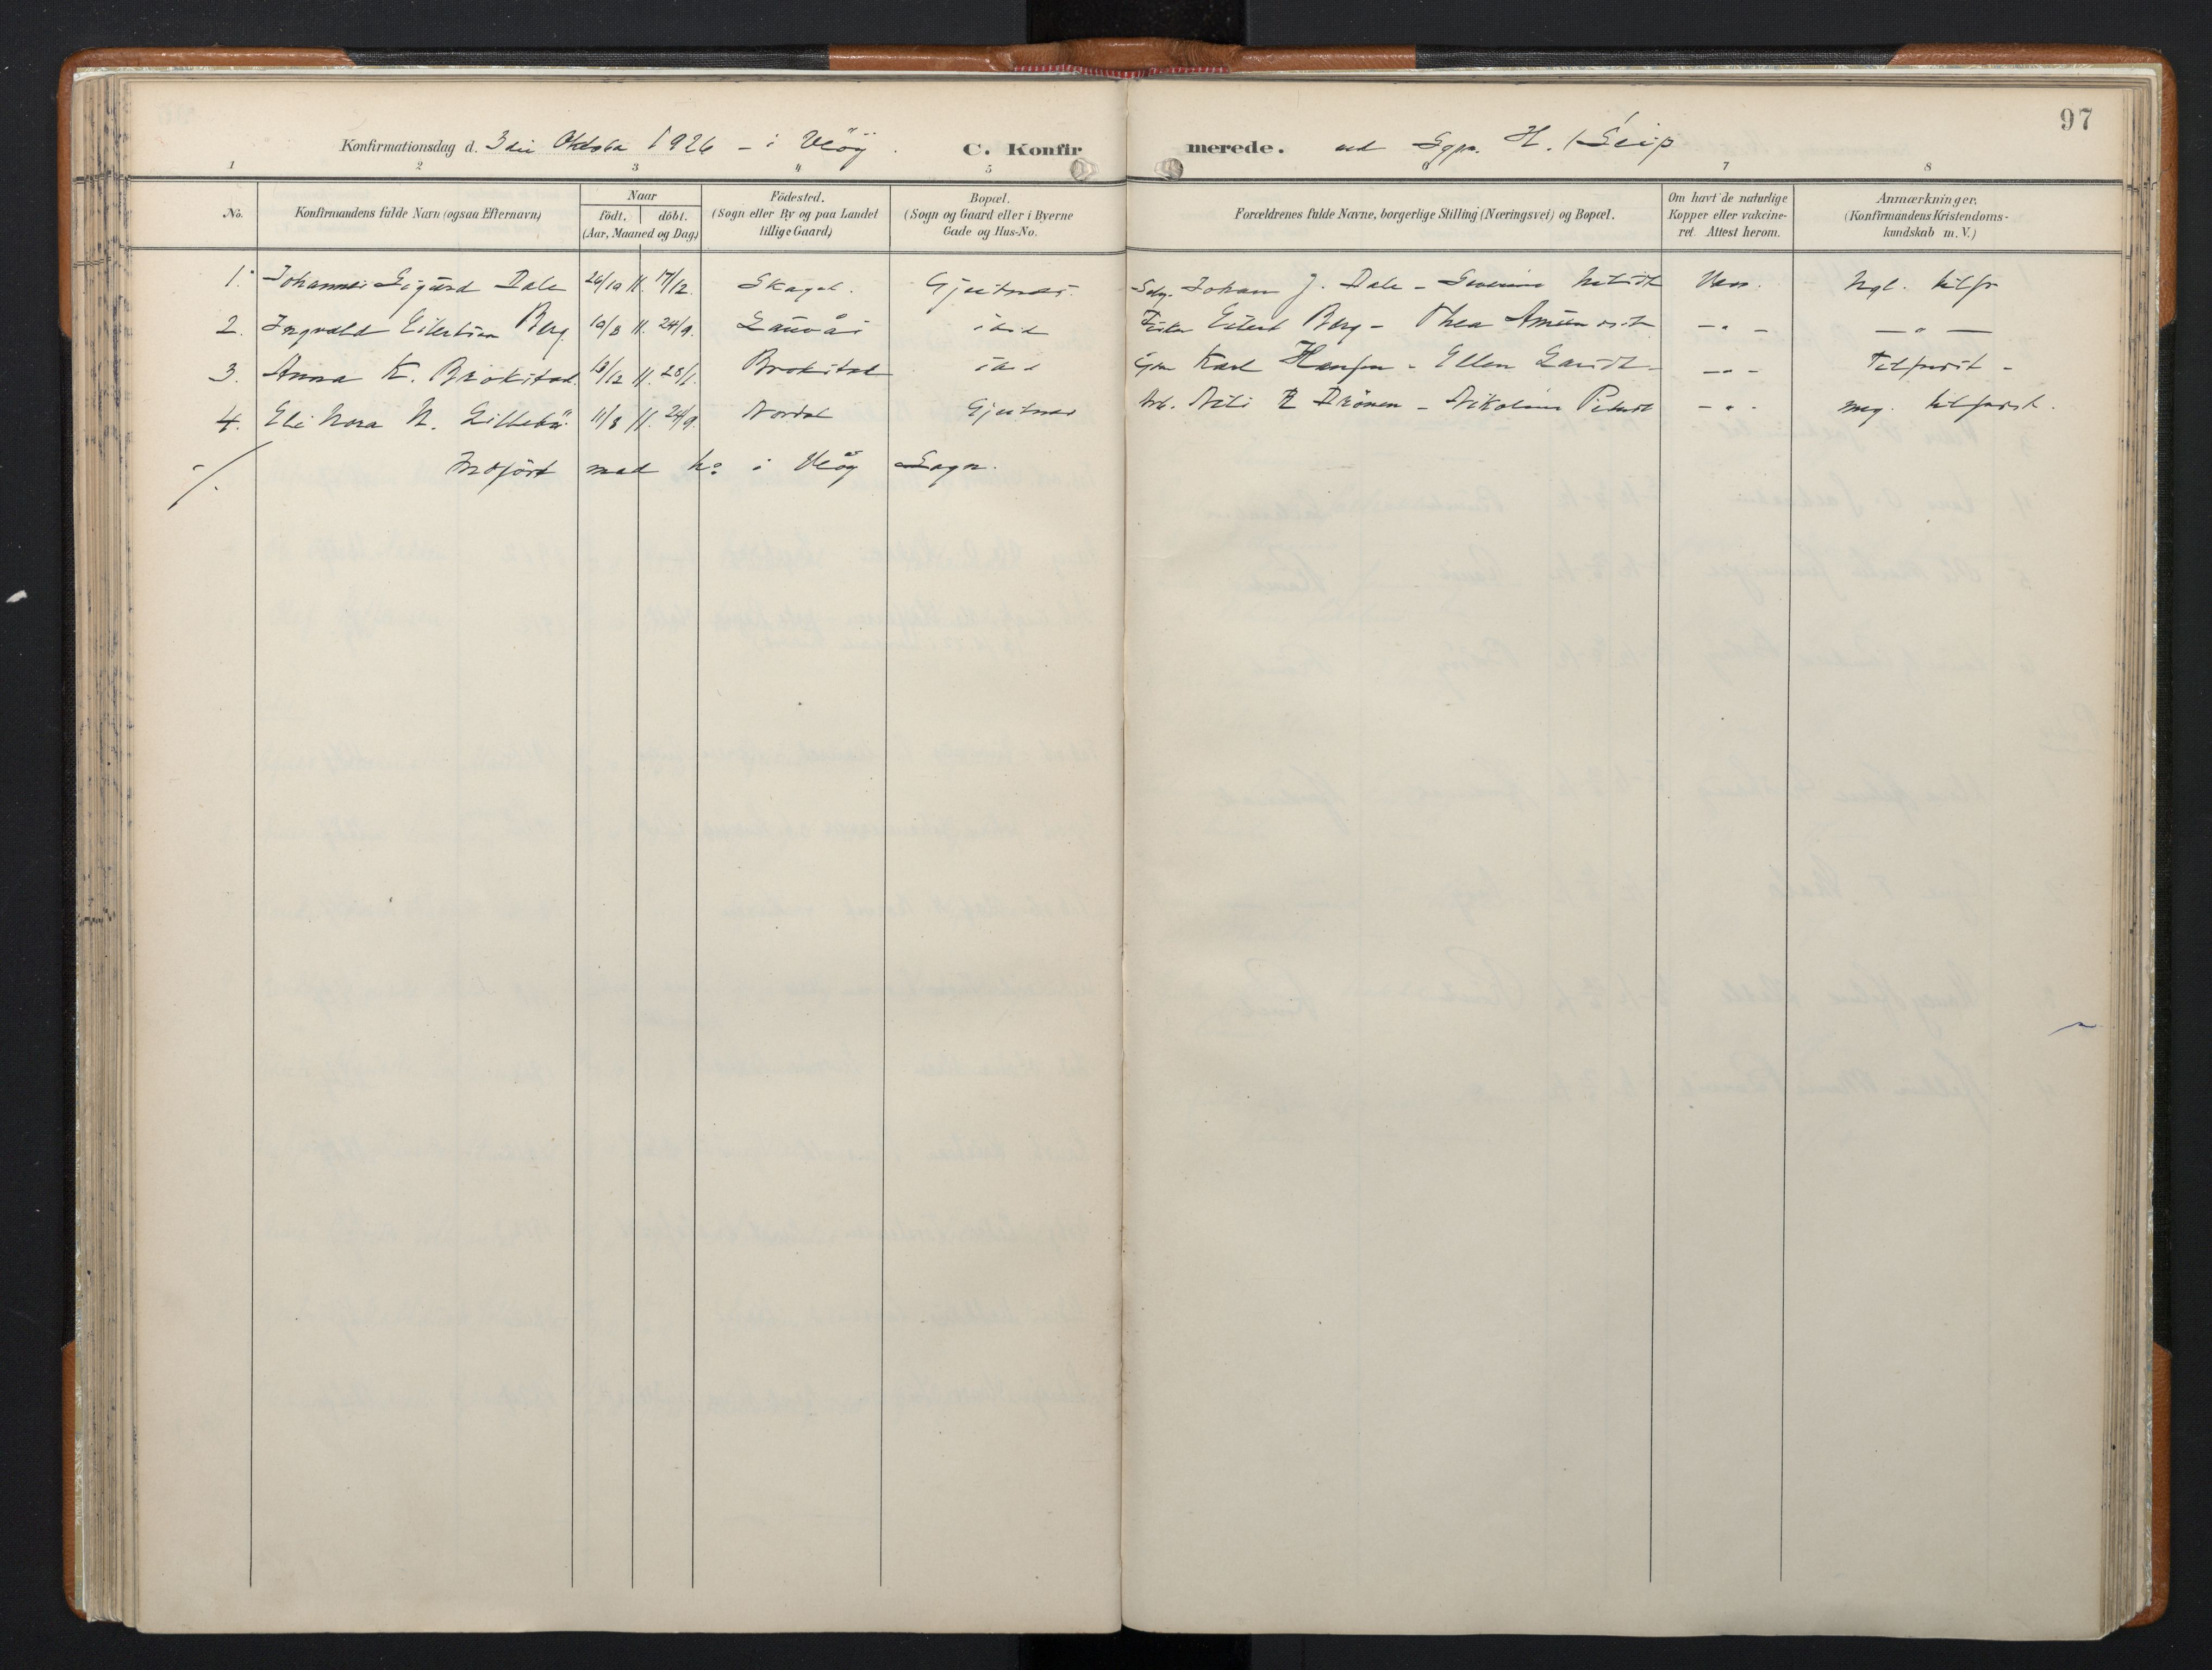 97
Konfirmationsdag d. 3die Oktober 1926 - i Veöy. C. Konfirmerede. ved Sgpr. H. Seip
1 2 3 4 5 6 7 8
No. Konfirmandens fulde Navn (ogsaa Efternavn) Naar födt. döbt. (Aar, Maaned og Dag) Födested. (Sogn eller By og paa Landet tillige Gaard) Bopæl. (Sogn og Gaard eller i Byerne Gade og Hus-No. Forældrenes fulde Navne, borgerlige Stilling (Næringsvei) og Bopæl. Om havt de naturlige Kopper eller vakcineret. Attest herom. Anmærkninger. (Konfirmandens Kristendomskundskab m. V.)
1. Johannes Sigurd Dale 26/10 11. 17/12. Skaget. Gjeitnes. Johan J. Dale - Severine Vacc. Ngl. tilfr
2. Ingvald Eilertsen Berg. 10/8 11. 24/9. Lauvås ibid Fisker Eilert Berg - Thea - " - - " -
3. Anna K. Brokstad. 13/12 11. 28/1. Brokstad ibd Karl Hansen - Ellen - " - Tilfredst -
4. Eli Nora N. Lillebø. 11/8 11. 24/9. Nordal Gjeitnes Arb. Nils R Drönen - Nikoline Pedersdt - " - meg. tilfredst.
-/. Indfört med No i Veöy Sogn.